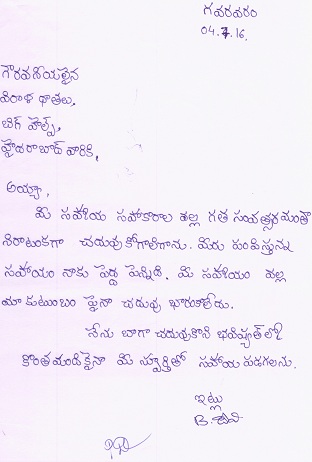 గవరవరం
04.7.16.
గౌరవనీయులైన
విరాళ దాతలు,
బిగ్ హెల్ప్,
హైదరాబాద్ వారికి,
అయ్యా,
మీ సహాయ సహకారాల వల్ల గత సంవత్సరమంతా
నిరాటంకగా చదువుకోగలిగాను. మీరు పంపిస్తున్న
సహాయం నాకు పెద్ద పెన్నిది. మీ సహాయం వల్ల
మా కుటుంబం పైనా చదువు భారంకాలేదు.
నేను బాగా చదువుకొని భవిష్యత్ లో
కొంతమందికైనా మీ స్ఫూర్తితో సహాయ పడగలను.
ఇట్లు
B.